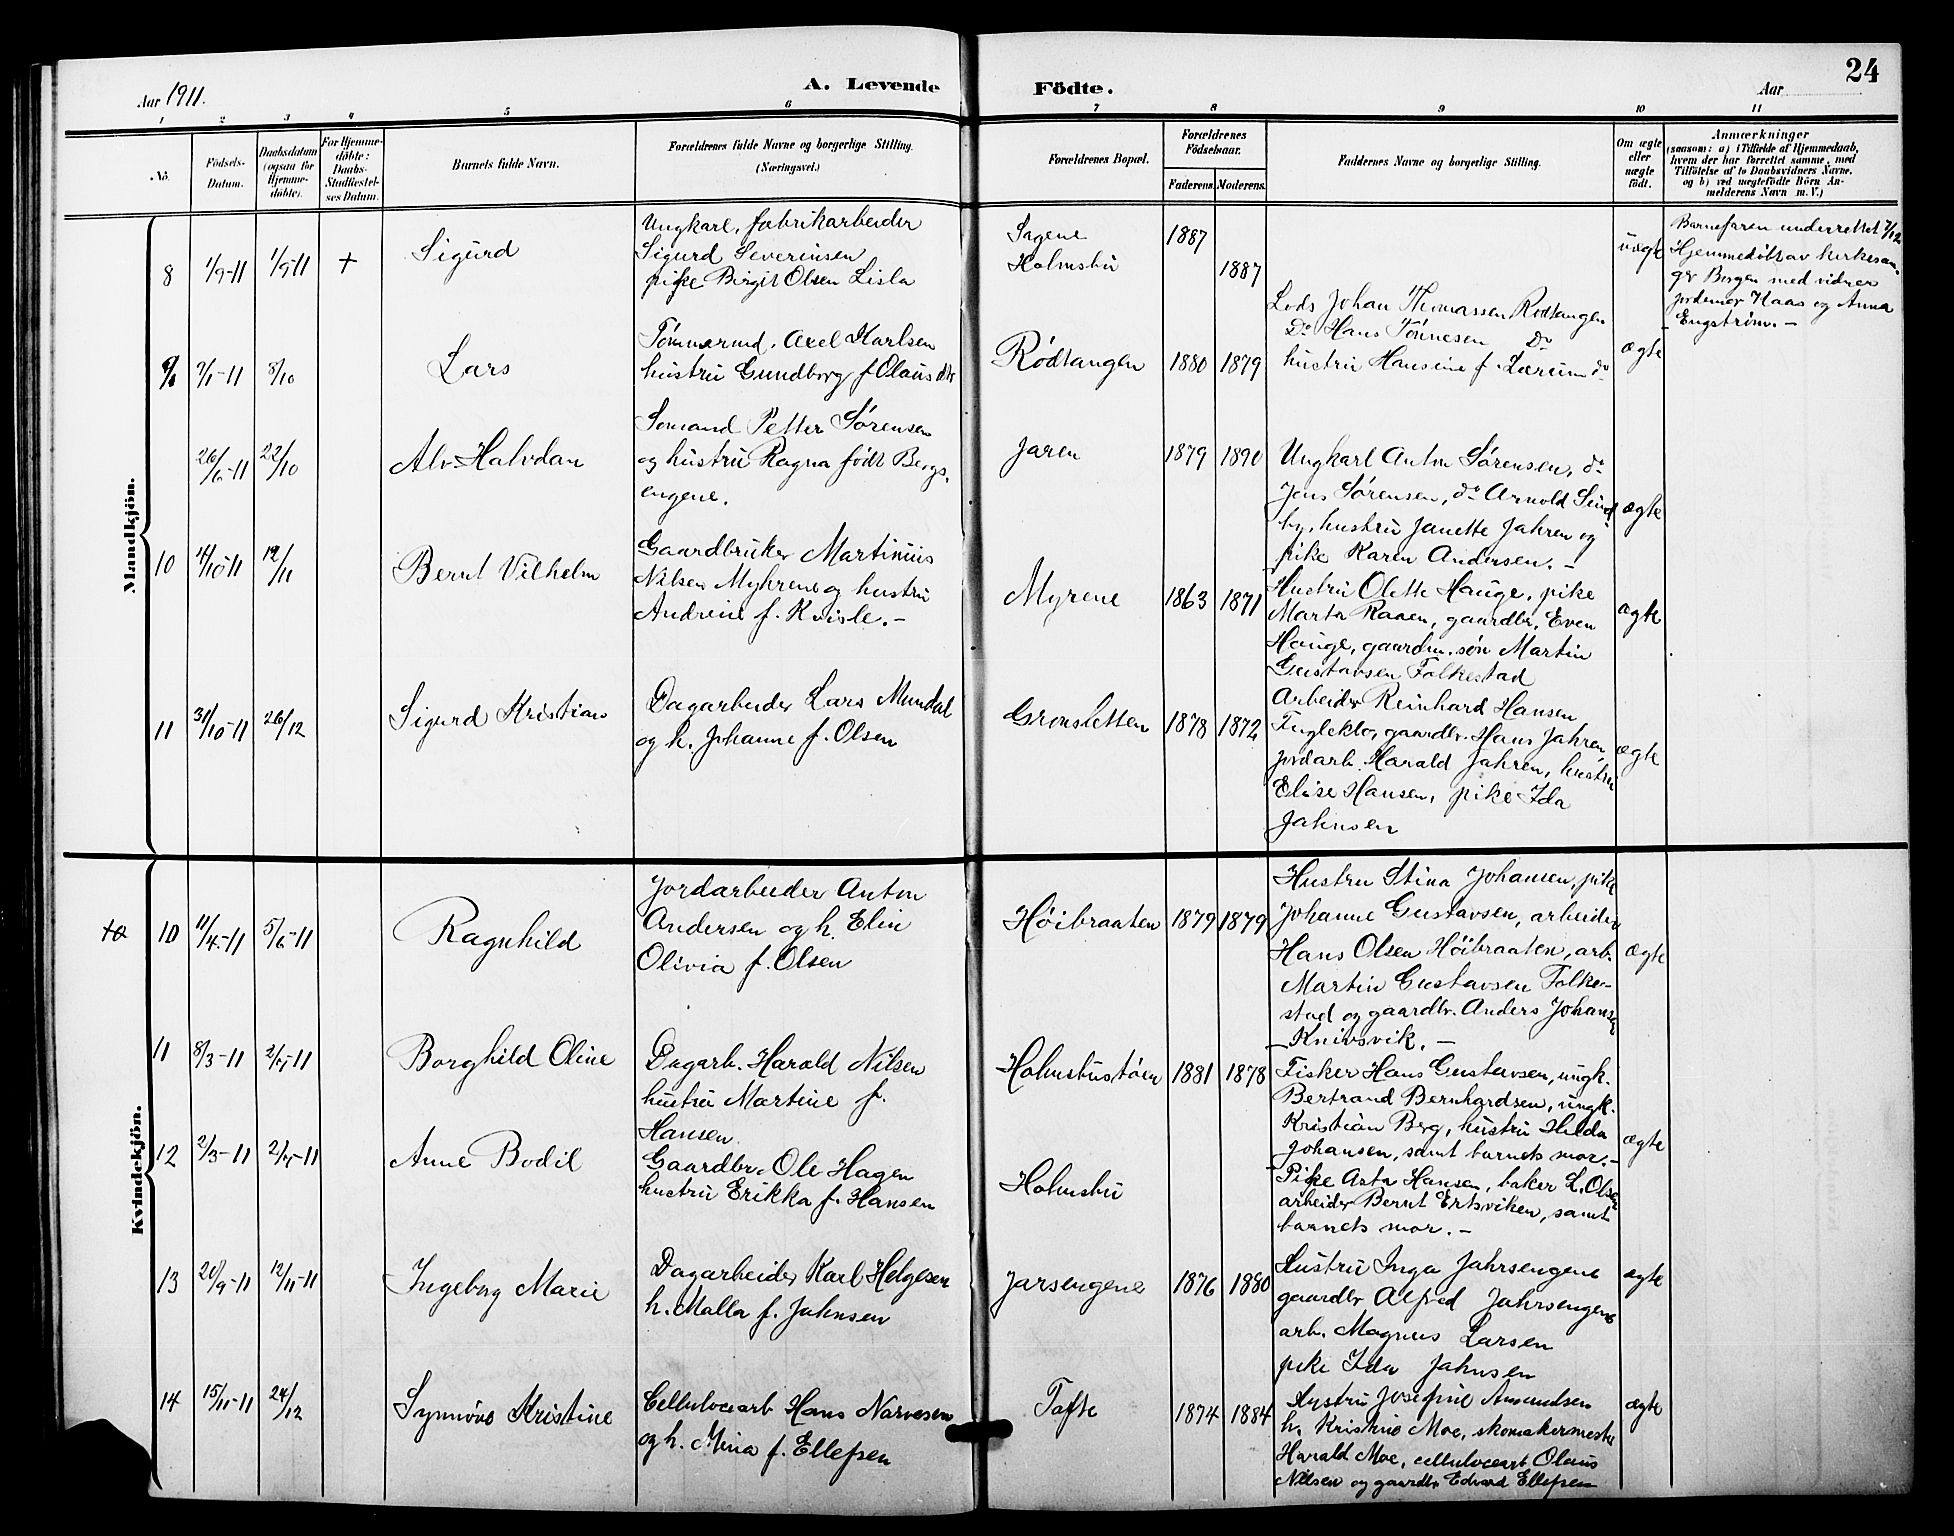 24
Aar 1911.
A. Levende
Födte.
Aar
1 2 3 4 5 6 7 8 9 10 11
No.
Födsels-
Datum.
Daabsdatum
(ogsaa for
Hjemme-
döbte).
For Hjemme-
döbte:
Daabs-
Stadfæstel-
ses Datum.
Barnets fulde Navn.
Forældrenes fulde Navne og borgerlige Stilling.
(Næringsvei.)
Forældrenes Bopæl.
Forældrenes
Födselsaar.
Faderens. Moderens.
Faddernes Navne og borgerlige Stilling.
Om ægte
eller
uægte
födt.
Anmærkninger
(saasom: a) i Tilfælde af Hjemmedaab,
hvem der har forrettet samme, med
Tilföielse af to Daabsvidners Navne,
og b) ved uægtefödte Börn An-
melderens Navn m. V.)
Mandkjön.
8 1/9-11 1/9-11 +
Sigurd
Ungkarl, fabrikarbeider
Sigurd Severinsen
pike Birgit Olsen Lisla
Sagene
Holmsbu
1887
1887
uægte
Barnefaren underrettet 7/12
Hjemmedöbt av kirkesan-
ger Bergen med vidner
jordemor Haas og Anna
Engström. -
9 8/10
Lars
Tömmermd. Axel Karlsen
hustru Gundborg f. Olausdtr
Rödtangen 1880 1879
Lods Johan Thomassen Rödtangen
Do Hans Tönnesen Do
hustru Hansine f. Lærum do
ægte
26/6-11 22/10
Alv Halvdan
Sömand Petter Sørensen
og hustru Ragna født Bergs-
engene.
Jaren 1879 1890
Ungkarl Anton Sørensen, do
Jens Sørensen, do Arnold Sund
by, hustru Janette Jahren og
pike Karen Andersen. -
ægte
10 4/10-11 19/11
Bernt Vilhelm
Gaardbruker Martinius
Nilsen Myhrene og hustru
Andrine f. Kvisle. -
Myrene 1863 1871
Hustru Olette Hauge, pike
Marta Raaen, gaardbr. Even
Hauge, gaardm. søn Martin
Gustavsen Folkestad
ægte
11 31/10-11 26/12
Sigurd Kristian
Dagarbeider Lars Mundal
og h. Johanne f. Olsen
Gronsletten 1878 1872
Arbeider Reinhard Hansen
Fugleklo, gaardbr. Hans Jahren,
jordarb. Harald Jahren, hustru
Elise Hansen, pike Ida
Jahnsen
ægte
Kvindekjön.
10 11/4-11 5/6-11
Ragnhild
Jordarbeider Anton
Andersen og h. Elin
Olivia f. Olsen
Höibraaten 1879 1879
Hustru Stina Johansen, pike
Johanne Gustavsen, arbeider
Hans Olsen Höibraaten, arb.
Martin Gustavsen Folke-
stad og gaardbr. Anders Johansen
Knivsvik. -
ægte
11 8/3-11 2/7-11
Borghild Oline
Dagarb. Harald Nilsen
hustru Martine f.
Hansen
Holmsbustöen 1881 1878
Fisker Hans Gustavsen, ungk.
Bertrand Bernhardsen, ungk.
Kristian Berg, hustru Hilda
Johansen, samt barnets mor. -
ægte
12 2/3-11 2/7-11
Anne Bodil
Gaardbr. Ole Hagen
hustru Erikka f. Hansen
Holmsbu
Pike Asta Hansen, baker L. Olsen
arbeider Bernt Ertsviken, samt
barnets mor. -
13 20/9-11 12/11-11
Ingeborg Marie
Dagarbeider Karl Helgesen
h. Malla f. Jahnsen
Jarsengene 1876 1880
Hustru Inga Jahrsengene
gaardbr Alfred Jahrsengene
arb. Magnus Larsen
pike Ida Jahnsen
ægte
14 15/11-11 24/12
Synnöve Kristine
Cellulosearb Hans Narvesen
og h. Mina f. Ellefsen
Tofte 1874 1884
Hustru Josefine Amundsen
h. Kristine Moe, skomakermester
Harald Moe, cellulosearb. Olaus
Nilsen og gaardbr Edvard Ellefsen
ægte